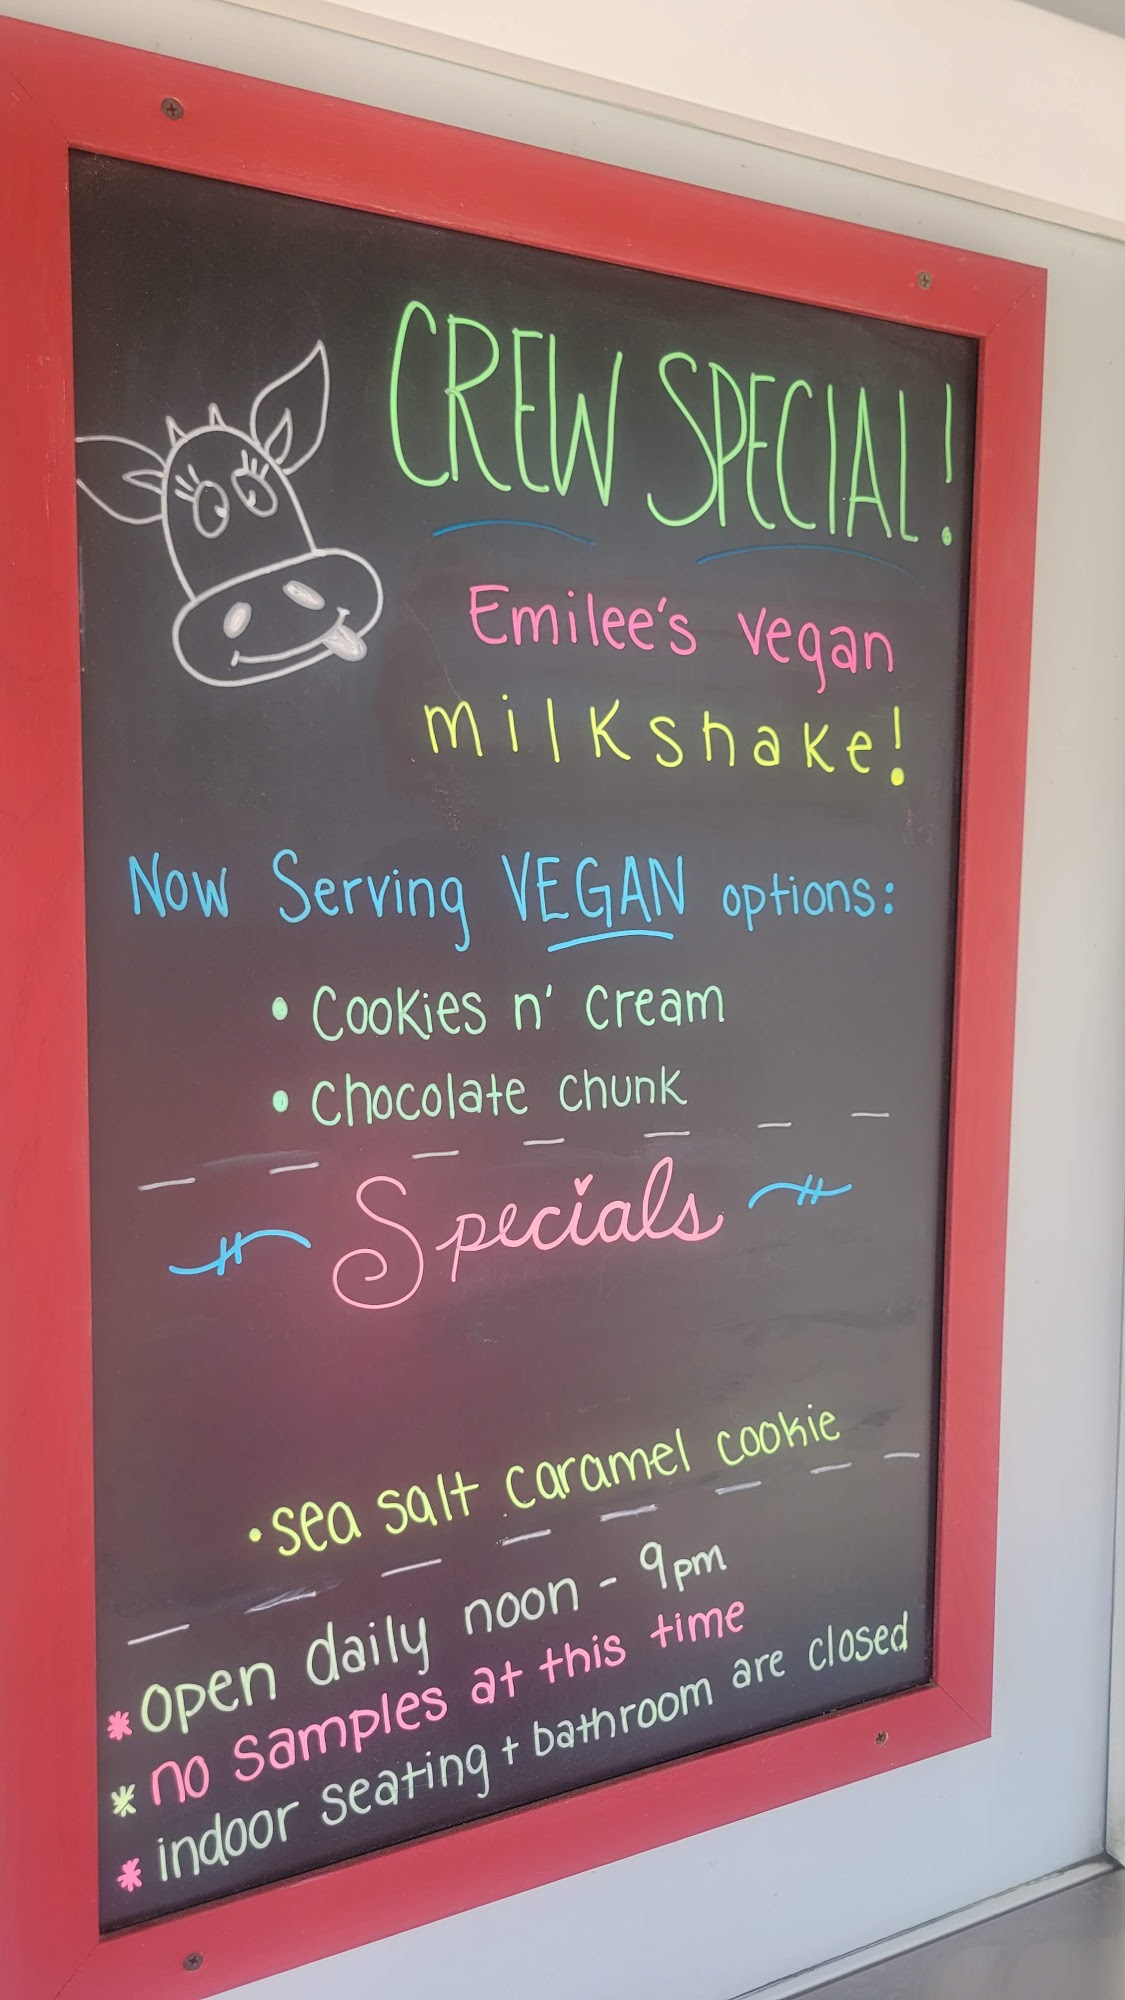 CREW SPECIAL!
Emilee's vegan
milkshake!
Now Serving VEGAN options:
• Cookies n' cream
• chocolate chunk
Specials
• sea salt caramel cookie
* open daily noon - 9pm
* no samples at this time
* indoor seating + bathroom are closed